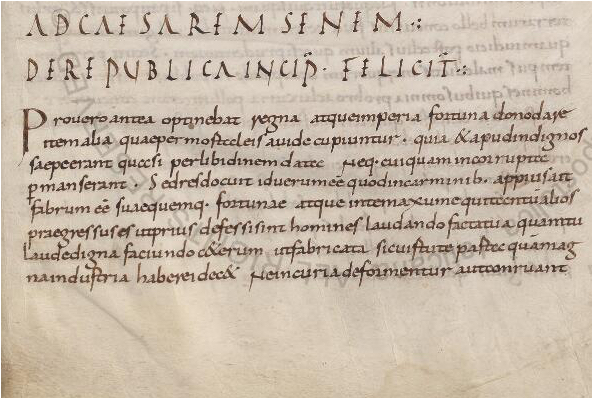 AD CAESAREM SENEM·:
DE RE PUBLICA INCIP̄· FELICIT̄·:
Provero antea optinebat regna atque imperia fortuna dono dare
item alia quae per mostceleis avide cupiuntur· quia & apud indignos
saepe erant quaesi per libidinem datae Neq· cuiquam incorruptae
p manserant· Sed res docuit id verum eē quod in carminib· appius ait
fabrum eē suae quemq· fortunae atque in te maxume qui tantū alios
praegressus es ut prius defessi sint homines laudando facta tua quam tu
laude digna faciundo c&erum ut fabricata sic virtute parta quā mag
na industria haberei dec& Ne incuria deformentur aut conruant